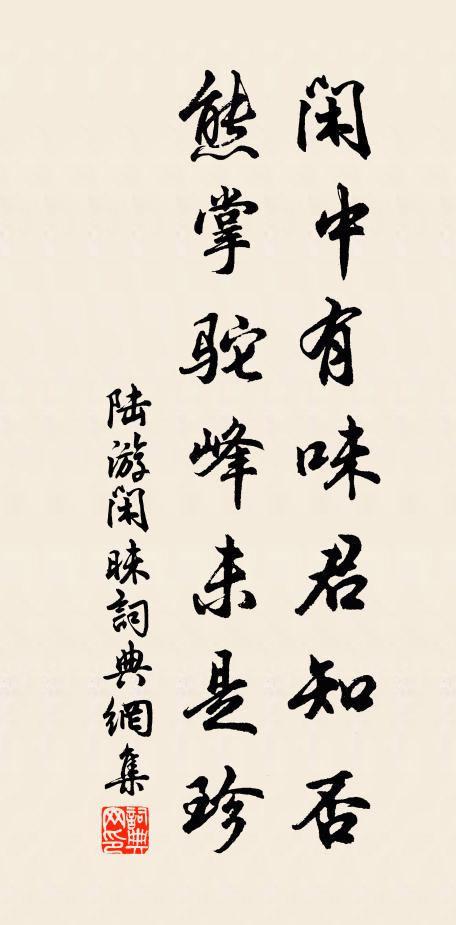 闲中有味君知否
熊掌驼峰未是珍
陆游闲味词典網集
詞典网印